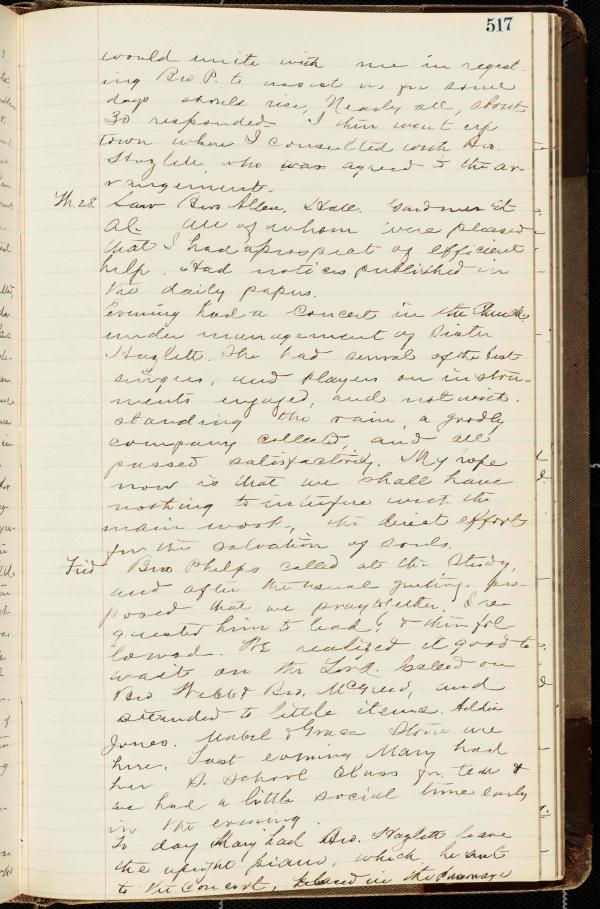 517
would unite with me in request-
ing Bro P. to assist us for some
days should rise, Nearly all, about
30 responded. I then went up
town where I consulted with Bro.
Hazlett, who was agreed to the ar-
rangement.
Th. 28 Saw Bros Allen, Hall, Gardner et
al. all of whom were pleased
that I had a prospect of efficient
help. Had notices published in
the daily papers.
Evening had a concert in the Church
under management of Sister
Hazlett. She had several of the best
singers, and players on instru-
ments engaged, and notwith-
standing the rain, a goodly
company collected, and all
passed satisfactorily. My hope
now is that we shall have
nothing to interfere with the
main work, the direct efforts
for the salvation of souls.
Frid Bro Phelps called at the Study,
and after the usual greetings pro-
posed that we pray together, I re-
quested him to lead, & I then fol-
lowed. We realized it good to
wait on the Lord. Called on
Bro Webb & Bro. and
attended to little items. Addie
Jones, Mabel & Grace Stone are
here. Last evening Mary had
her S. School class for tea &
we had a little social time early
in the evening.
To day Mary had Bro. Hazlett leave
the upright piano, which he sent
to the Concert, placed in the Parsonage